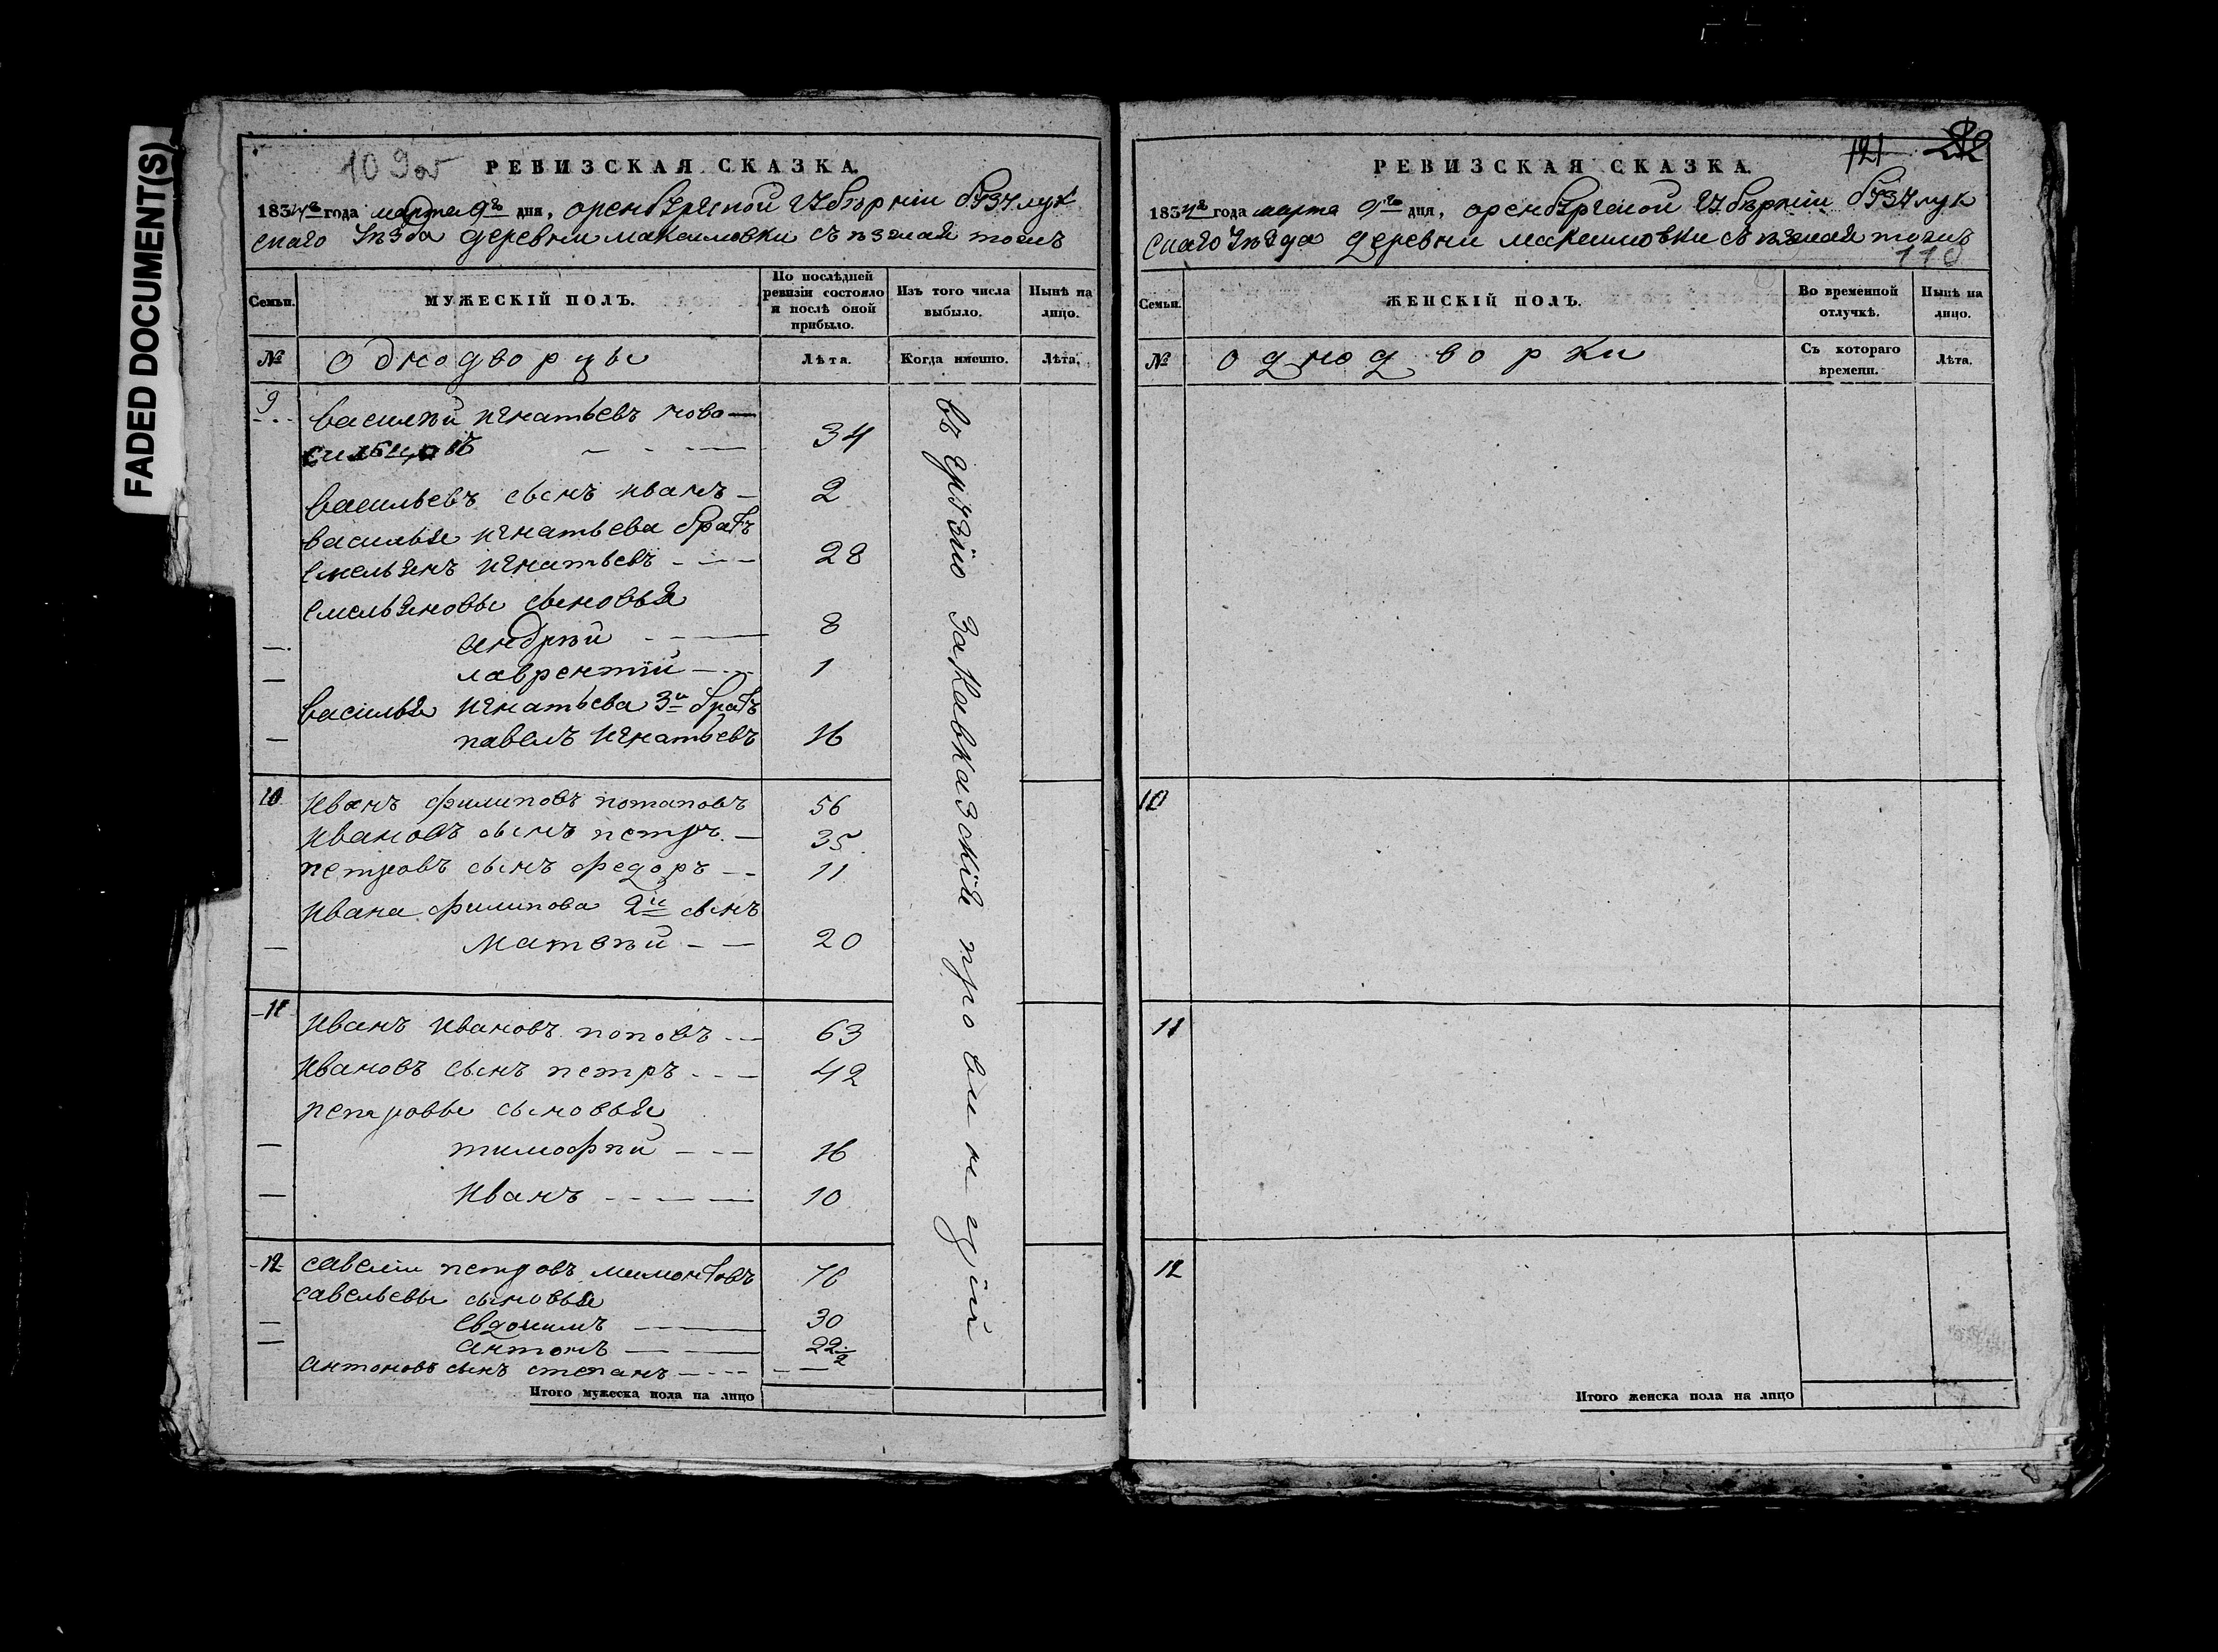 FADED DOCUMENT(S)
109об
РЕВИЗСКАЯ СКАЗКА.
1834го года марта 9го дня, оренбургской губернiи бузулук
скаго уѣзда деревни максимовки съѣзжая тожъ
Семьи.
МУЖЕСКIЙ ПОЛЪ.
По послѣдней ревизiи состояло и послѣ оной прибыло.
Изъ того числа выбыло.
Нынѣ на лицо.
№
однодворцы
Лѣта.
Когда имено.
Лѣта.
9
василѣй игнатьевъ ново—
сильцовъ 34
васильевъ сынъ иванъ 2
василья игнатьева братъ
емельянъ игнатьевъ 28
емельяновы сыновья
андрѣй 8
лаврентiй 1
василья игнатьева 3й братъ
павелъ игнатьевъ 16
10 иванъ филиповъ потаповъ 56
ивановъ сынъ петръ 35
петровъ сынъ федоръ 11
ивана филипова 2й сынъ
матвѣй 20
11
иванъ ивановъ поповъ 63
ивановъ сынъ петръ 42
петровы сыновья
тимофѣй 16
иванъ 10
12 савелiй петровъ мимонтовъ 76
савельевы сыновья
евдокимъ 30
антонъ 22
антоновъ сынъ степанъ 2
въ грузiю закавказскiя провинцiи
Итого мужеска пола на лицо
121 22
РЕВИЗСКАЯ СКАЗКА.
1834го года марта 9го дня, оренбургской губернiи бузулук
скаго уѣзда деревни максимовки съѣзжая тожъ
110
Семьи.
ЖЕНСКIЙ ПОЛЪ.
Во временной отлучкѣ.
Нынѣ на лицо.
№
однодворки
Съ котораго времени.
Лѣта.
10
11
12
Итого женска пола на лицо